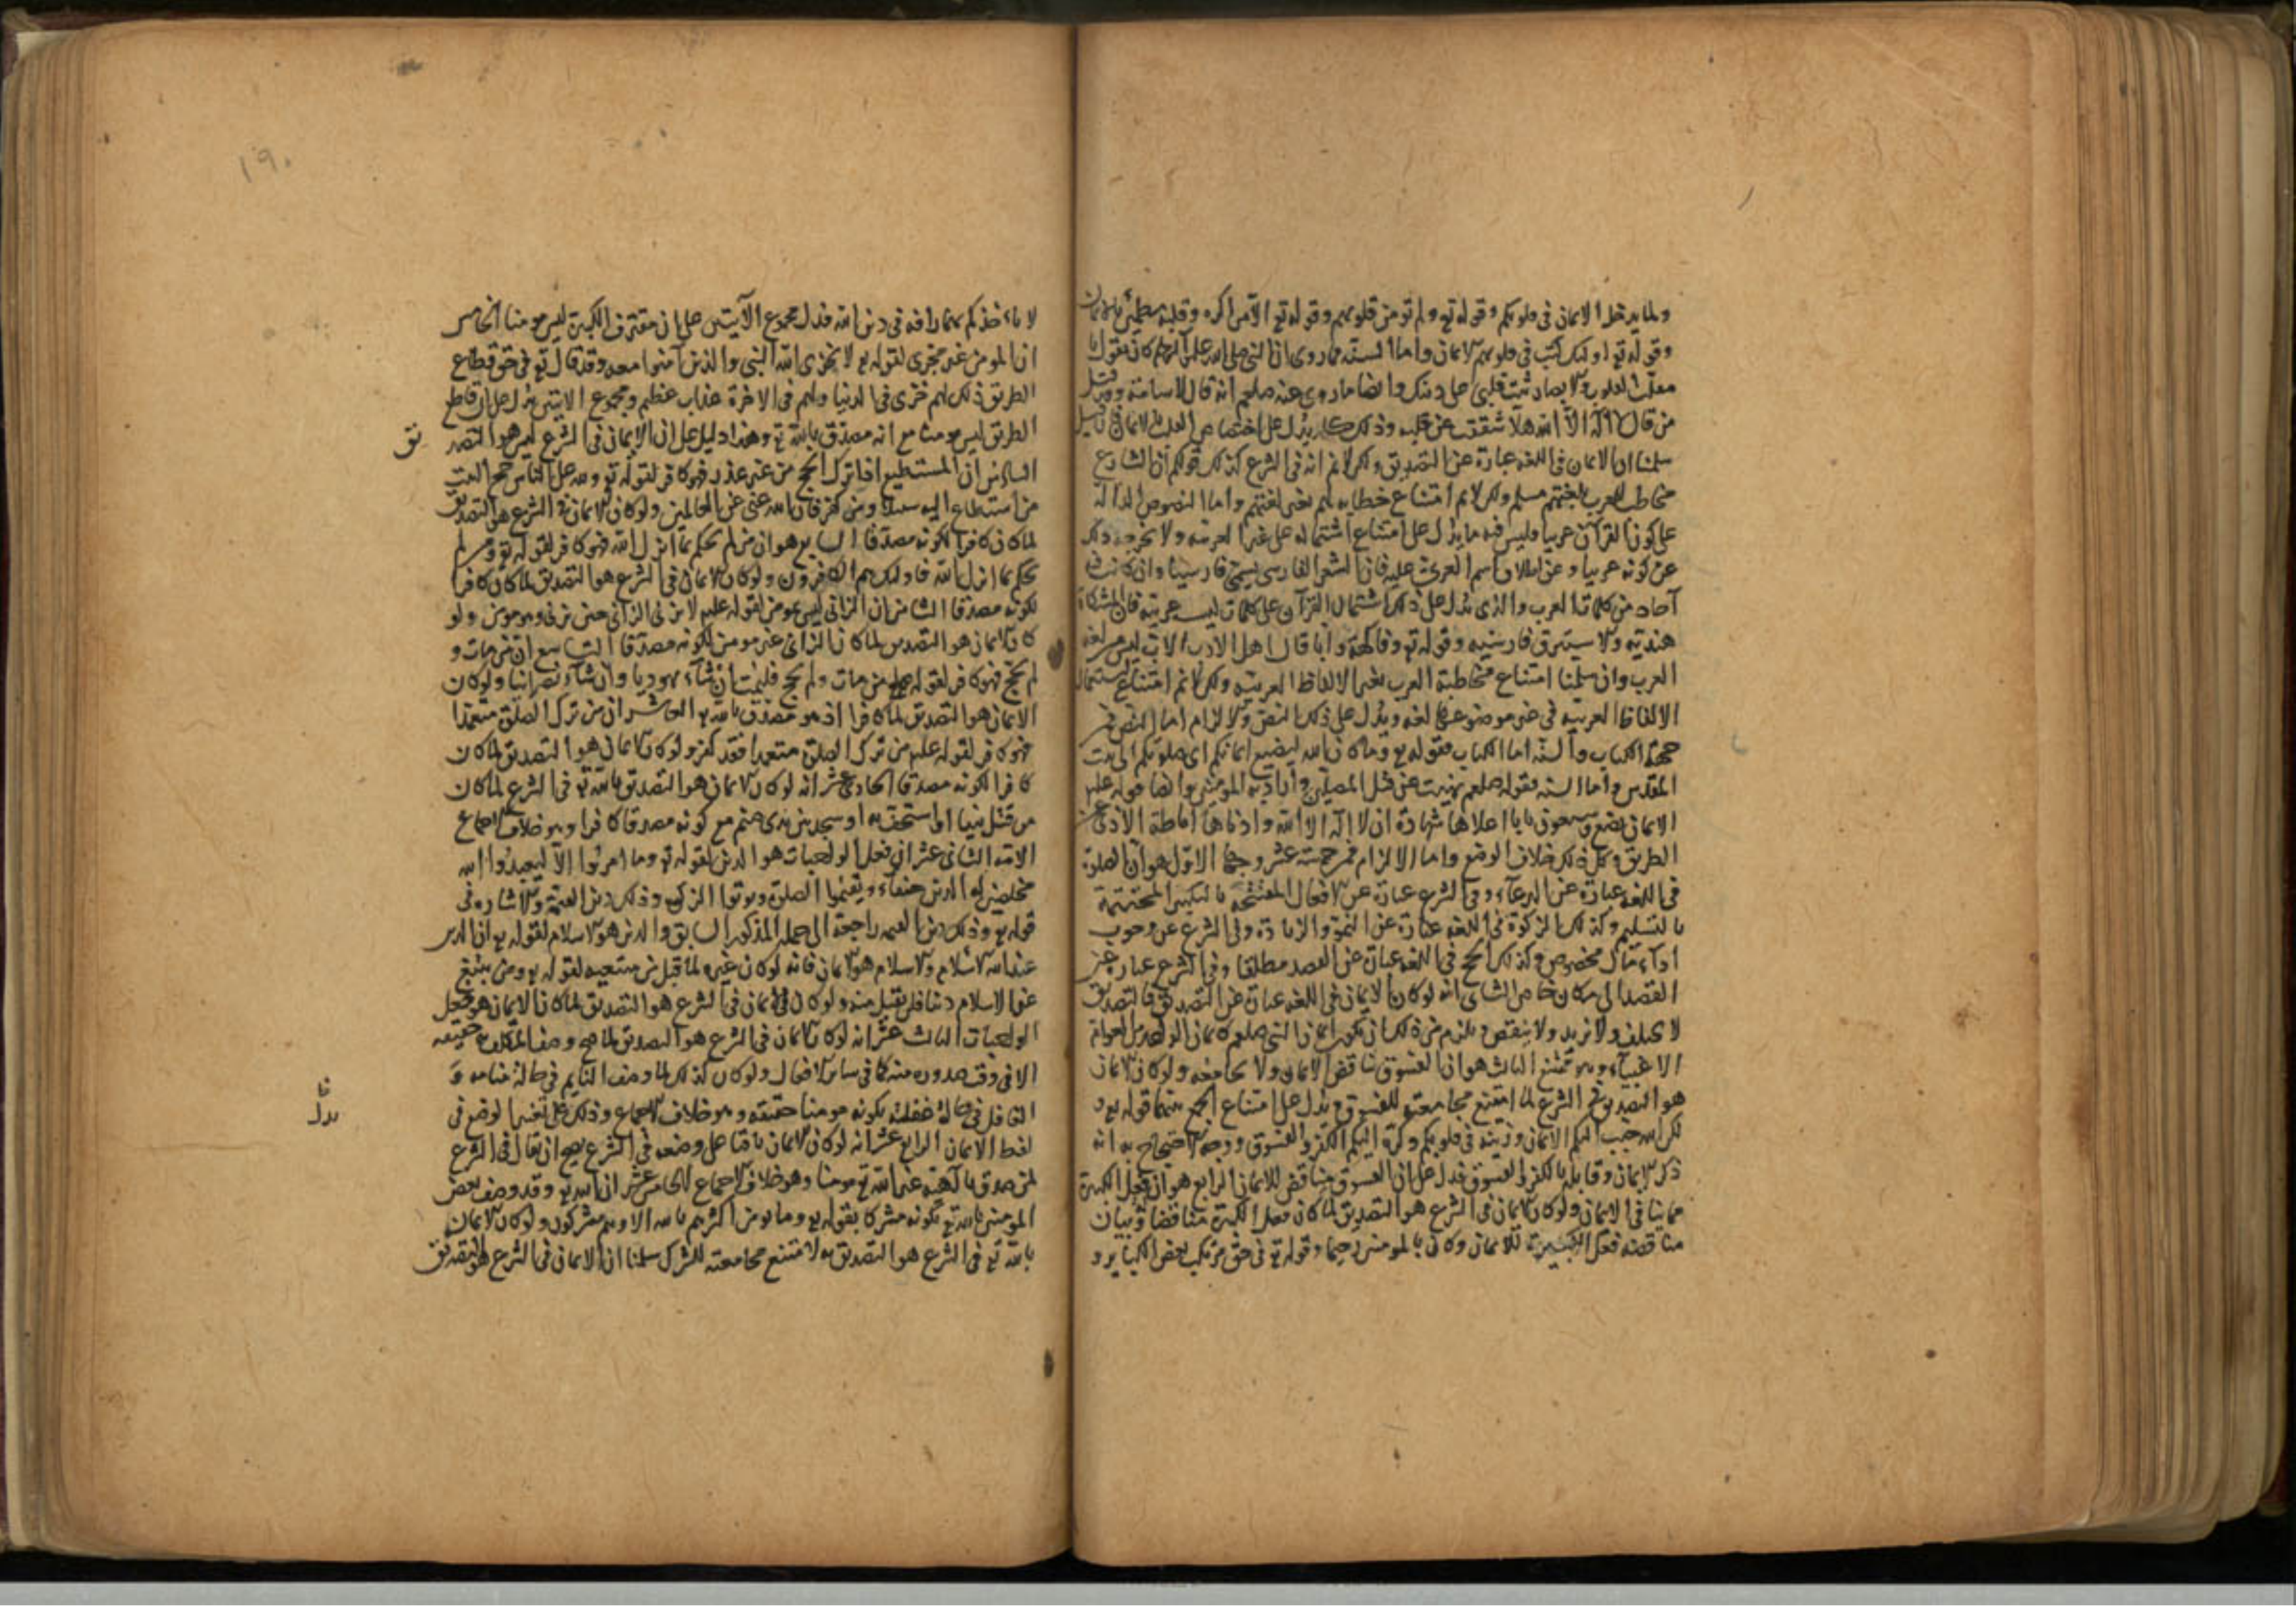 ولما يدخل الايمان فى قلوبكم وقوله تع ولم تؤمن قلوبهم وقوله تع الا من اكره وقلبه مطمئن بالايمان
وقوله تع اولئك كتب فى قلوبهم الايمان واما السنه فما روى ان النبى صلى الله عليه وآله وسلم كان يقول يا
مقلب القلوب والابصار ثبت قلبى على دينك وايضا ما روى عنه صلعم انه قال لاسامة وقد قتل
من قال لا اله الا الله هلا شققت عن قلبه وذلك كله يدل على اختصاص القلب بالايمان فان قيل
سلمنا ان الايمان فى اللغه عبارة عن التصديق ولكن لا نم انه فى الشرع كذلك قولكم ان الشارع
مخاطب للعرب بلغتهم مسلم ولكن لا نم امتناع خطابه لهم بغير لغتهم واما النصوص الدالة
على كون القرآن عربيا فليس فيه ما يدل على امتناع اشتماله على غير العربيه ولا يخرجه ذلك
عن كونه عربيا وعن اطلاق اسم العربى عليه فان الشعر الفارسى يسمى فارسيا وان كانت فيه
آحاد من كلمات العرب والذى يدل على ذلك اشتمال القرآن على كلمات ليست عربيه فان المشكاة
هنديه والاستبرق فارسيه وقوله تع وفاكهة وابا قال اهل الادب الاب ليس من لغه
العرب وان سلمنا امتناع مخاطبة العرب بغير الالفاظ العربيه ولكن لا نم امتناع استعمال
الالفاظ العربيه فى غير موضوعها لغه ويدل على ذلك النص والالزام اما النص فمن
جهة الكتاب والسنه اما الكتاب فقوله تع وما كان الله ليضيع ايمانكم اى صلوتكم الى بيت
المقدس واما السنه فقوله صلعم نهيت عن قتل المصلين وأراد به المؤمنين وايضا قوله عليه
الايمان بضع وسبعون بابا اعلاها شهادة ان لا اله الا الله وادناها اماطة الاذى عن
الطريق وكل ذلك خلاف الوضع واما الالزام فمن خمسة عشر وجها الاول هو ان الصلوة
فى اللغه عبارة عن الدعاء وفى الشرع عبارة عن الافعال المفتتحه بالتكبير المختتمة
بالتسليم وكذلك الزكوة فى اللغه عبارة عن النمو والزيادة وفى الشرع عن وجوب
اداء مال مخصوص وكذلك الحج فى اللغه عبارة عن القصد مطلقا وفى الشرع عبارة عن
القصد الى مكان خاص الثانى انه لو كان الايمان فى اللغه عبارة عن التصديق فالتصديق
لا يختلف ولا يزيد ولا ينقص ويلزم من ذلك ان يكون ايمان النبى صلعم كايمان الواحد من العوام
الاغبياء وهو ممتنع الثالث هو ان الفسوق يناقض الايمان ولا يجامعه ولو كان الايمان
هو التصديق فى الشرع لما امتنع مجامعته للفسوق ويدل على امتناع الجمع بينهما قوله تع و
لكن الله حبب اليكم الايمان وزينه فى قلوبكم وكره اليكم الكفر والفسوق ووجه الاحتجاج به انه
ذكر الايمان وقابله بالكفر والفسوق فدل على ان الفسوق مناقض للايمان الرابع هو ان فعل الكبيرة
مما ينافى الايمان ولو كان الايمان فى الشرع هو التصديق لما كان فعل الكبيرة مناقضا وبيان
مناقضه فعل الكبيرة للايمان وكان بالمومنين رحيما وقوله تع فى حق مرتكب بعض الكبائر و
لا تاخذكم بهما رافه فى دين الله فدل مجموع الآيتين على ان مقترف الكبيرة ليس مومنا الخامس
ان المومن غير مخزى لقوله تع لا يخزى الله النبى والذين آمنوا معه وقد قال تع فى حق قطاع
الطريق ذلك لهم خزى فى الدنيا ولهم فى الاخرة عذاب عظيم ومجموع الايتين يدل على ان قاطع
الطريق ليس مومنا مع انه مصدق بالله تع وهذا دليل على ان الايمان فى الشرع ليس هو التصديق
السادس ان المستطيع اذا ترك الحج من غير عذر فهو كافر لقوله تع ولله على الناس حج البيت
من استطاع اليه سبيلا ومن كفر فان الله غنى عن العالمين ولو كان الايمان فى الشرع هو التصديق
لما كان كافرا لكونه مصدقا السابع هو ان من لم يحكم بما انزل الله فهو كافر لقوله تع ومن لم
يحكم بما انزل الله فاولئك هم الكافرون ولو كان الايمان فى الشرع هو التصديق لما كان كافرا
لكونه مصدقا الثامن ان الزانى ليس بمومن لقوله عليه لا يزنى الزانى حين يزنى وهو مومن ولو
كان الايمان هو التصديق لما كان الزانى غير مومن لكونه مصدقا التاسع ان من مات و
لم يحج فهو كافر لقوله عليه من مات ولم يحج فليمت ان شاء يهوديا وان شاء نصرانيا ولو كان
الايمان هو التصديق لما كان كافرا اذ هو مصدق بالله تع العاشر ان من ترك الصلوة متعمدا
فهو كافر لقوله عليه من ترك الصلوة متعمدا فقد كفر ولو كان الايمان هو التصديق لما كان
كافرا لكونه مصدقا الحادى عشر انه لو كان الايمان هو التصديق بالله تع فى الشرع لما كان
من قتل نبيا او استخف به او سجد بين يدى صنم مع كونه مصدقا كافرا وهو خلاف اجماع
الامه الثانى عشر ان فعل الواجبات هو الدين لقوله تع وما امروا الا ليعبدوا الله
مخلصين له الدين حنفاء ويقيموا الصلوة ويوتوا الزكوة وذلك دين القيمة والاشاره فى
قوله تع وذلك دين القيمه راجعة الى جمله المذكور السابق والدين هو الاسلام لقوله تع ان الدين
عند الله الاسلام والاسلام هو الايمان فانه لو كان غيره لما قبل من مبتغيه لقوله تع ومن يبتغ
غير الاسلام دينا فلن يقبل منه ولو كان الايمان فى الشرع هو التصديق لما كان الايمان هو فعل
الواجبات الثالث عشر انه لو كان الايمان فى الشرع هو التصديق لما صح وصف المكلف به حقيقه
الا فى وقت صدوره منه كما فى سائر الافعال ولو كان كذلك لما وصف النايم فى حالة منامه و
الغافل فى حالة غفلته بكونه مومنا حقيقه وهو خلاف الاجماع وذلك يدل على تغير الوضع فى
لفظ الايمان الرابع عشر انه لو كان الايمان باقيا على وضعه فى الشرع لصح ان يقال فى الشرع
لمن صدق بآلهية غير الله تع مومنا وهو خلاف الاجماع الخامس عشر ان الله تع قد وصف بعض
المومنين بالله تع بكونه مشركا بقوله تع وما يومن اكثرهم بالله الا وهم مشركون ولو كان الايمان
بالله تع فى الشرع هو التصديق به لامتنع مجامعته للشرك سلمنا ان الايمان فى الشرع هو التصديق
١٩٠